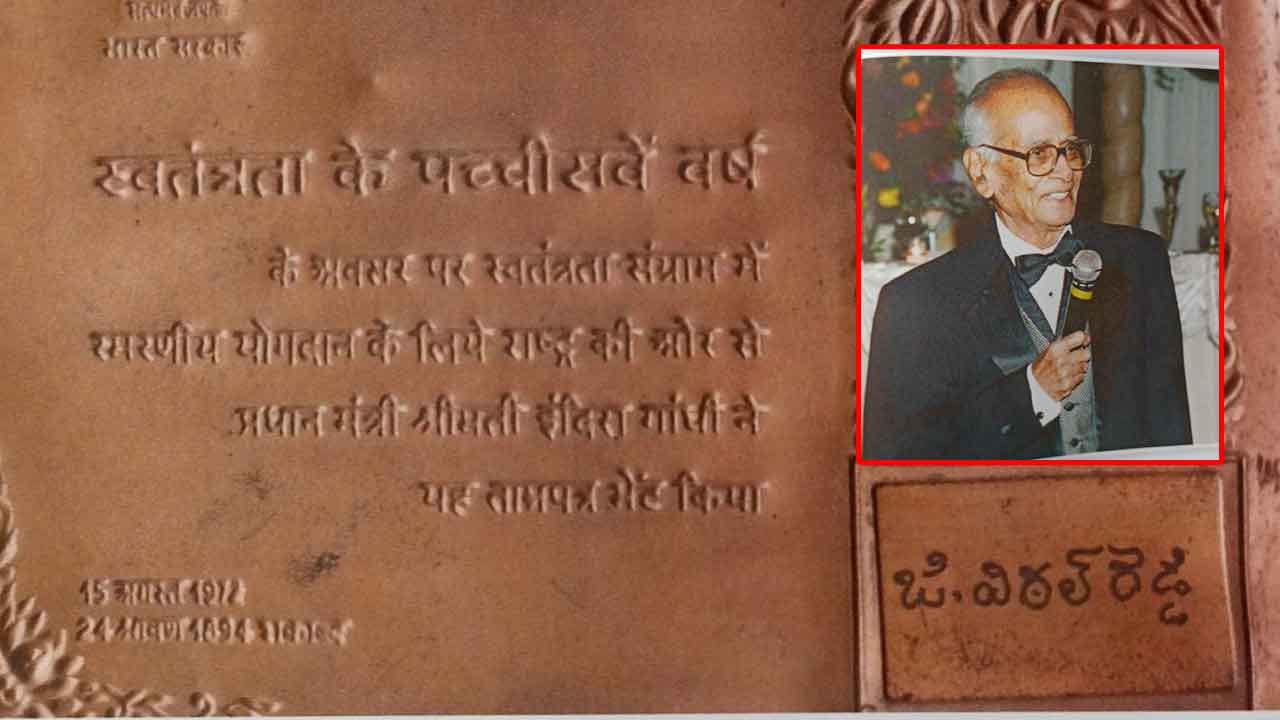 सत्यमेव जयते
भारत सरकार
स्वतंत्रता के पच्चीसवें वर्ष
के अवसर पर स्वतंत्रता संग्राम में
स्मरणीय योगदान के लिये राष्ट्र की ओर से
प्रधान मंत्री श्रीमती इंदिरा गांधी ने
यह ताम्रपत्र भेंट किया
15 अगस्त 1972
24 श्रावण 1894
జి. విఠల్ రెడ్డి